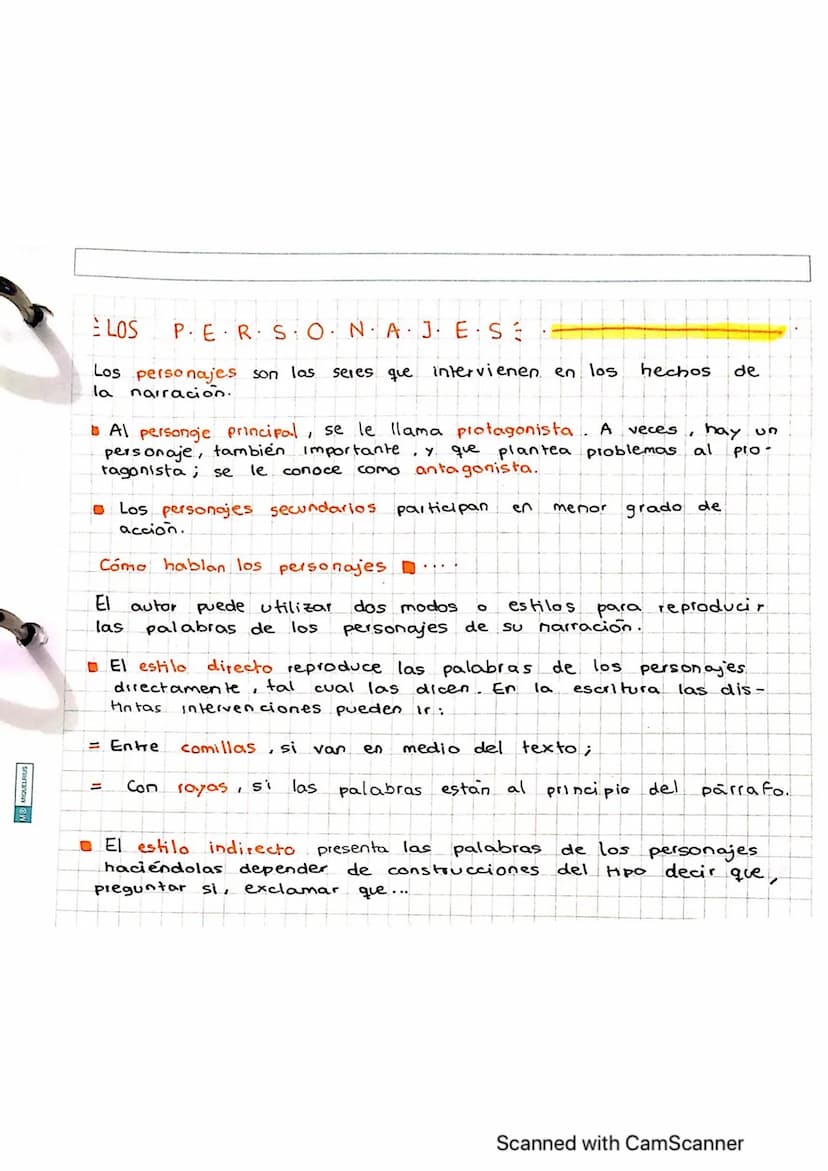 LOS P.E.R.S.O.N.A.J.E.S
Los personajes son los seres que intervienen en los hechos de
la narración.
Al personaje principal, se le llama protagonista. A veces, hay un
personaje, también importante, y que plantea problemas al pro-
tagonista; se le conoce como antagonista.
Los personajes secundarios participan en menor grado de
acción.
Cómo hablan los personajes ....
El autor puede utilizar dos modos o estilos para reproducir
las palabras de los personajes de su narración.
El estilo directo reproduce las palabras de los personajes
directamente, tal cual las dicen. En la escritura las dis-
tintas intervenciones pueden ir:
= Entre comillas, si van en medio del texto;
= Con rayas, si las palabras están al principio del párrafo.
El estilo indirecto presenta las palabras de los personajes
haciéndolas depender de construcciones del tipo decir que,
preguntar si, exclamar que...
MIQUELRIUS
Scanned with CamScanner